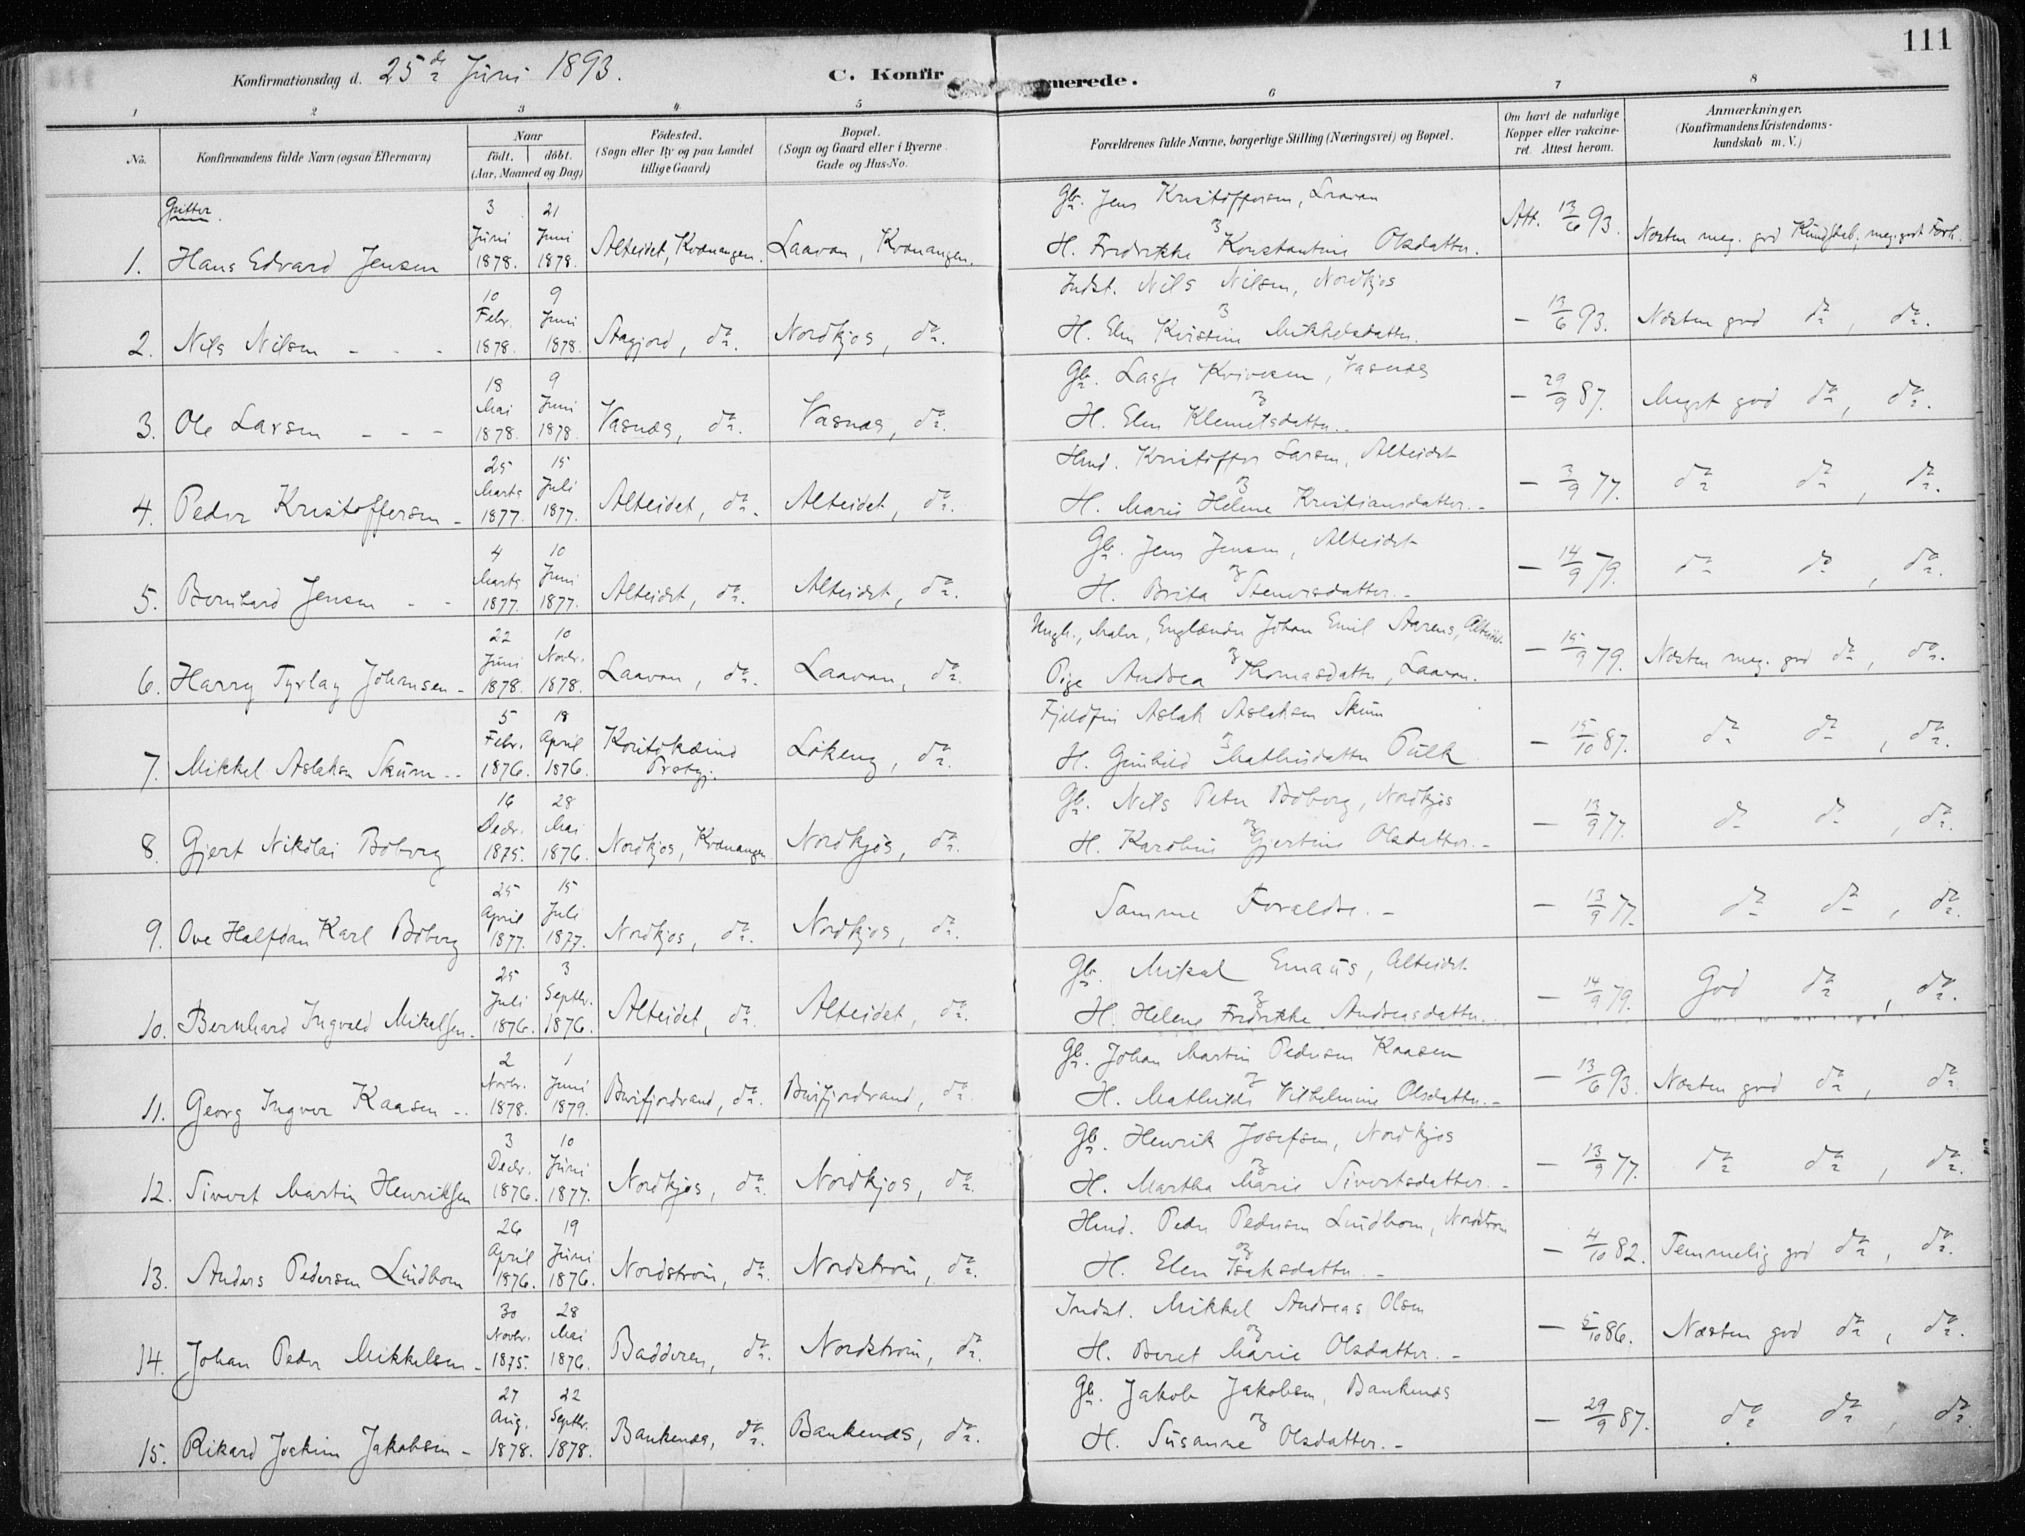 111
Konfirmationsdag d. 25de Juni 1893.
C. Konfirmerede.
1 2 3 4 5 6 7 8
No.
Konfirmandens fulde Navn (ogsaa Efternavn)
Naar
födt. döbt.
(Aar, Maaned og Dag)
Födested.
(Sogn eller By og paa Landet
tillige Gaard)
Bopæl.
(Sogn og Gaard eller i Byerne
Gade og Hus-No.
Forældrenes fulde Navne, borgerlige Stilling (Næringsvei) og Bopæl.
Om havt de naturlige
Kopper eller vakcine-
ret. Attest herom.
Anmærkninger.
(Konfirmandens Kristendoms-
kundskab m. V.)
Gutter.
1. Hans Edvard Jensen 3 Juni 1878. 21 Juni 1878. Alteidet, Kvænangen. Laavan, Kvænangen. Gb. Jens Kristoffersen, Laavan
H. Fredrikke Konstantine Olsdatter. Att. 13/6 93. Næsten meg. god Kundskab, meg. godt Forh.
2. Nils Nilsen - - - 10 Febr. 1878. 9 Juni 1878. do. Nordkjos, do. Indst. Nils Nilsen, Nordkjos
H. Elen Kristine Mikkelsdatter. - 13/6 93. Næsten god do, do.
3. Ole Larsen - - - 18 Mai 1878. 9 Juni 1878. Vasnæs, do. Vasnæs, do. Gb. Vasnæs
H. Elen Klemetsdatter. - 29/9 87. Meget god do, do.
4. Peder Kristoffersen - 25 Marts 1877. 15 Juli 1877. Alteidet, do. Alteidet, do. Hmd. Kristoffer Larsen, Alteidet
H. Marie Helene Kristiansdatter. - 3/9 77. do do, do.
5. Bernhard Jensen - - 4 Marts 1877. 10 Juni 1877. Alteidet, do. Alteidet, do. Gb. Jens Jensen, Alteidet
H. Brita Stenersdatter. - 14/9 79. do do, do.
6. Harry Tyrlay Johansen - 22 Juni 1878. 10 Novbr. 1878. Laavan, do. Laavan, do. Ungk., Maler, Englænder Johan Emil Aarens, Alteidet
Pige Andrea Thomasdatter, Laavan. - 15/9 79. Næsten meg. god do, do.
7. Mikkel Aslaksen Skum - - 5 Febr. 1876. 18 April 1876. Koutokæino Prstgj. Løkeng, do. Fjeldfin Aslak Aslaksen Skum
H. Gunhild Mathisdatter Pulk - 15/10 87. do do, do.
8. Gjert Nikolai Boberg 16 Decbr. 1875. 28 Mai 1876. Nordkjos, Kvænangen Nordkjos, do. Gb. Nils Peter Boberg, Nordkjos
H. Karoline Gjertine Olsdatter. - 13/9 77. do do, do.
9. Ove Halfdan Karl Boberg 25 April 1877. 15 Juli 1877. Nordkjos, do. Nordkjos, do. Samme Forældre. - 13/9 77. do do, do.
10. Bernhard Ingvald Mikalsen. 25 Juli 1876. 3 Septbr. 1876. Alteidet, do. Alteidet, do. Gb. Mikal Emaus, Alteidet
H. Helene Fredrikke Andreasdatter. - 14/9 79. God do, do.
11. Georg Ingver Kaasen - 2 Novbr. 1878. 1 Juni 1879. Burfjordvand, do. Burfjordvand, do Gb. Johan Martin Pedersen Kaasen
H. Mathilde Vilhelmine Olsdatter. - 13/6 93. Næsten god do, do
12. Sivert Martin Henriksen 3 Decbr. 1876. 10 Juni 1877. Nordkjos, do. Nordkjos, do. Gb. Henrik Josefsen, Nordkjos
H. Martha Marie Sivertsdatter. - 13/9 77. do do, do.
13. Anders Pedersen Lindbom 26 April 1876. 19 Juni 1876. Nordstrøm, do. Nordstrøm, do. Hmd. Peder Pedersen Lindbom, Nordstrøm
H. Elen Isaksdatter - 4/10 82. Temmelig god do, do.
14. Johan Peder Mikkelsen - 30 Novbr. 1875. 28 Mai 1876. Badderen, do. Nordstrøm, do. Indst. Mikkel Andreas Olsen
H. Beret Marie Olsdatter. - 5/10 86. Næsten god do, do.
15. Rikard Joakim Jakobsen - 27 Aug. 1878. 22 Septbr. 1878. Bankenæs, do. Bankenæs, do. Gb. Jakob Jakobsen, Bankenæs
H. Susanne Olsdatter. - 29/9 87. do do, do.